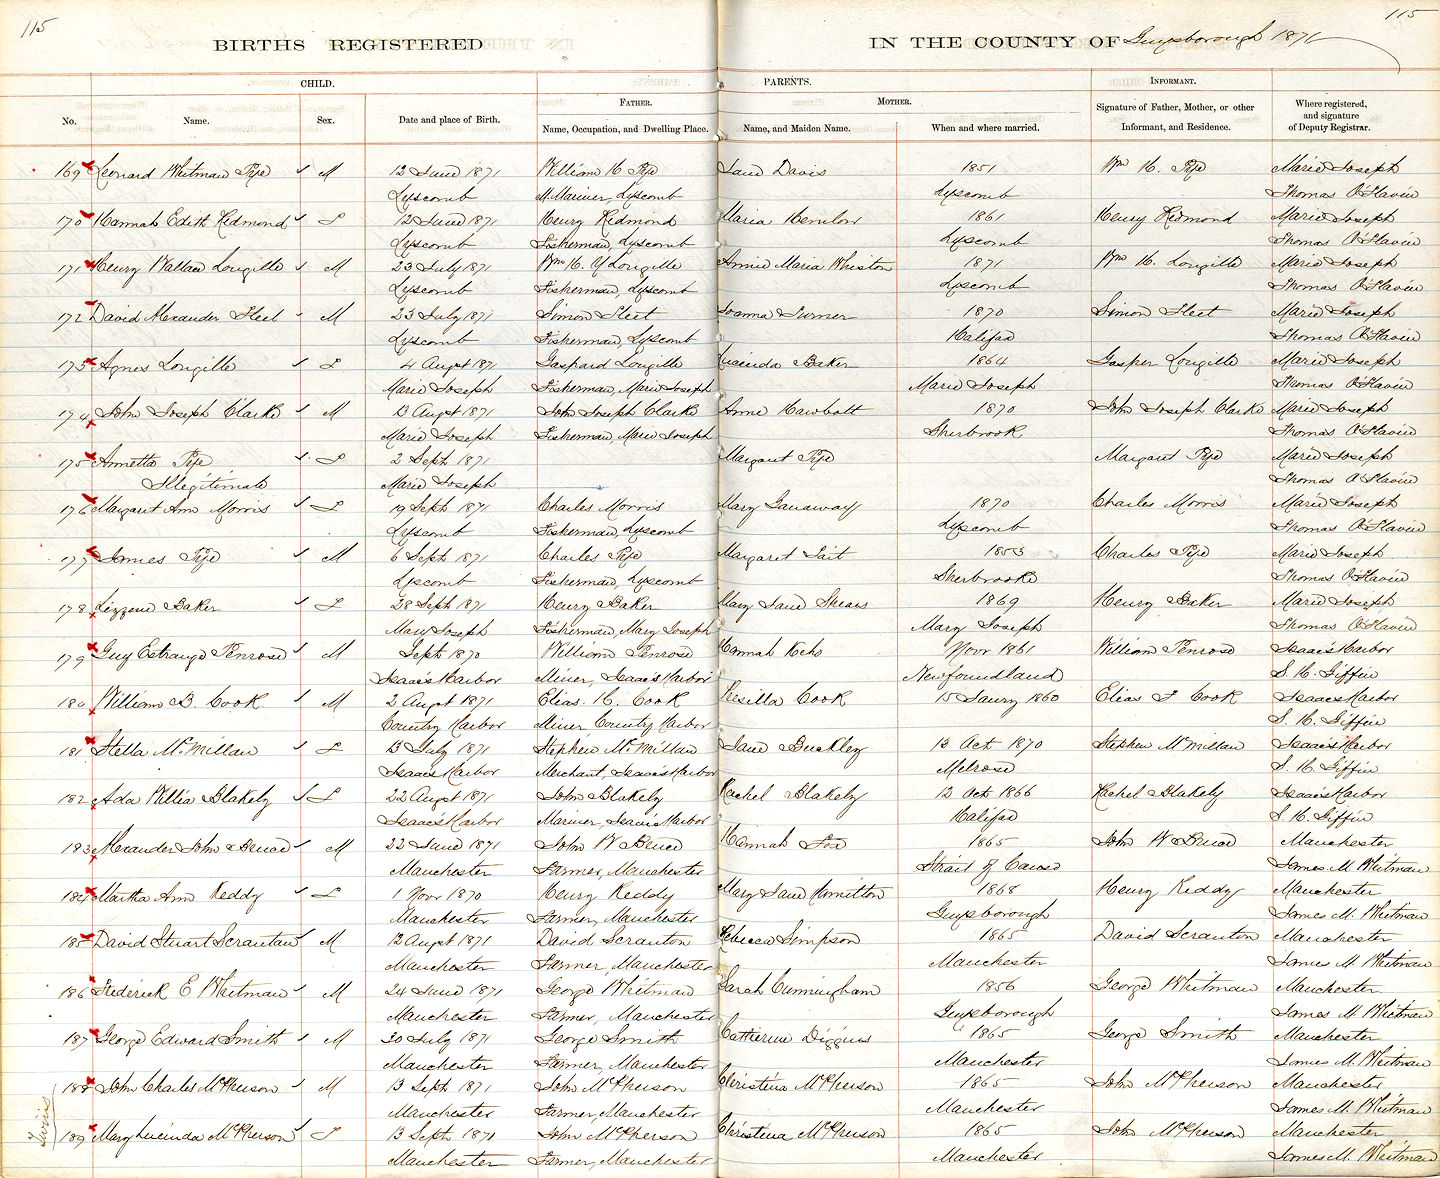 115
115
BIRTHS REGISTERED IN THE COUNTY OF Guysborough 1871
CHILD. PARENTS. INFORMANT.
FATHER. MOTHER.
No. Name. Sex. Date and place of Birth. Name, Occupation, and Dwelling Place. Name, and Maiden Name. When and where married. Signature of Father, Mother, or other Informant, and Residence. Where registered, and signature of Deputy Registrar.
169 Leonard Whitman Pye M 12 June 1871 William H Pye Jane Davis 1851 Wm H. Pye Marie Joseph
Lyscomb M. Mariner, Lyscomb Lyscomb Thomas O'Flavin
170 Hannah Edith Redmond F 12 June 1871 Henry Redmond Maria Hemlow 1861 Henry Redmond Marie Joseph
Lyscomb Fisherman, Lyscomb Lyscomb Thomas O'Flavin
171 Henry Wallace Lougille M 23 July 1871 Wm H. Y Lougille Annie Maria Wheston 1871 Wm H. Lougille Marie Joseph
Lyscomb Fisherman, Lyscomb Lyscomb Thomas O'Flavin
172 David Alexander Fleet M 23 July 1871 Simon Fleet Joanna Turner 1870 Simon Fleet Marie Joseph
Lyscomb Fisherman, Lyscomb Halifax Thomas O'Flavin
173 Agnes Lougille F 4 August 1871 Gaspard Lougille Lucinda Baker 1864 Gasper Lougille Marie Joseph
Marie Joseph Fisherman, Marie Joseph Marie Joseph Thomas O'Flavin
174 John Joseph Clarke M 13 Augst 1871 John Joseph Clarke Anne Hawbolt 1870 John Joseph Clarke Marie Joseph
Marie Joseph Fisherman, Marie Joseph Sherbrook Thomas O'Flavin
175 Annetta Pye F 2 Sept 1871 Margaret Pye Margaret Pye Marie Joseph
Illegitimate Marie Joseph Thomas O'Flavin
176 Margaret Ann Morris F 19 Sept 1871 Charles Morris Mary Ganaway 1870 Charles Morris Marie Joseph
Lyscomb Fisherman, Lyscomb Lyscomb Thomas O'Flavin
177 James Pye M 6 Sept 1871 Charles Pye Margaret Tait 1853 Charles Pye Marie Joseph
Lyscomb Fisherman, Lyscomb Sherbrooke Thomas O'Flavin
178 Lizzene Baker F 28 Sept 1871 Henry Baker Mary Jane Shears 1869 Henry Baker Marie Joseph
Mary Joseph Fisherman, Mary Joseph Mary Joseph Thomas O'Flavin
179 Guy Estrange Penrose M Sept 1870 William Penrose Hannah Nov 1861 William Penrose Isaac's Harbor
Isaac's Harbor Miner, Isaac's Harbor Newfoundland S. H. Giffin
180 William B. Cook M 2 Augst 1871 Elias. H. Cook Presilla Cook 15 Janry 1860 Elias F Cook Isaac's Harbor
Country Harbor Miner Country Harbor S. H. Giffin
181 Stella McMillan F 13 July 1871 Stephen McMillan Jane Buckley 13 Oct 1870 Stephen McMillan Isaac's Harbor
Isaac's Harbor Merchant, Isaac's Harbor Melrose S. H. Giffin
182 Ada Willia Blakely F 22 Augst 1871 John Blakely Rachel Blakely 13 Oct 1866 Rachel Blakely Isaac's Harbor
Isaac's Harbor Mariner, Isaac's Harbor Halifax S. H. Giffin
183 Alexander John Bruce M 22 June 1871 John W Bruce Hannah Fox 1865 John W Bruce Manchester
Manchester Farmer, Manchester Strait of Canso James M. Whitman
184 Martha Ann Reddy F 1 Nov 1870 Henry Reddy Mary Jane Hamilton 1868 Henry Reddy Manchester
Manchester Farmer, Manchester Guysborough James M. Whitman
185 David Stuart Scrantan M 12 Augst 1871 David Scranton Rebecca Simpson 1865 David Scranton Manchester
Manchester Farmer, Manchester Manchester James M. Whitman
186 Frederick E Whitman M 24 June 1871 George Whitman Sarah Cunningham 1856 George Whitman Manchester
Manchester Farmer, Manchester Guysborough James M Whitman
187 George Edward Smith M 20 July 1871 George Smith Catherine Diggins 1865 George Smith Manchester
Manchester Farmer, Manchester Manchester James M. Whitman
188 John Charles McPherson M 13 Sept 1871 John McPherson Christina McPherson 1865 John McPherson Manchester
Manchester Farmer, Manchester Manchester James M. Whitman
Twins
189 Mary Lucinda McPherson F 13 Sept 1871 John McPherson Christena McPherson 1865 John McPherson Manchester
Manchester Farmer, Manchester Manchester James M. Whitman